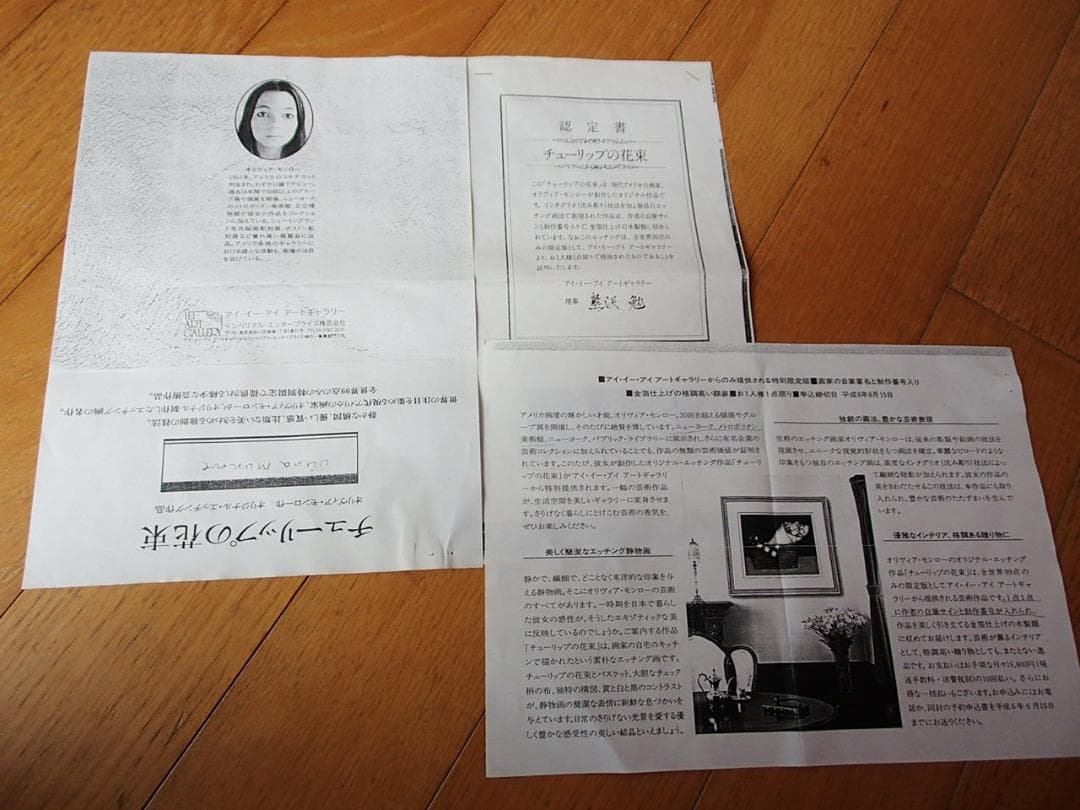 オリヴィア・モンロー
アイ・イー・アイ アートギャラリー
インペリアル・エンタープライズ株式会社
IEI
ART
GALLERY
チューリップの花束
オリヴィア・モンロー作 オリジナル・エッチング作品
静かな構図、優しい質感、比類ない美をきわめる独創の技法。
世界の注目を集める現代アメリカの画家、オリヴィア・モンローがオリジナル制作したエッチング画の名作。
全世界99点のみの特別限定で提供される稀少な芸術作品。
認定書
チューリップの花束
この「チューリップの花束」は、現代アメリカの画家、
オリヴィア・モンローが制作したオリジナル作品で
す。インタグリオ(沈み彫り)技法を加え独自のエッ
チング画法で表現された作品は、作者の自筆サイ
ンと制作番号入りで、金箔仕上げの木製額に収めら
れています。なおこのエッチングは、全世界99点の
みの限定版として、アイ・イー・アイ アートギャラリー
より、お1人様1点限りで提供されたものであることを
証明いたします。
アイ・イー・アイ アートギャラリー
理事 熊沢 勉
■アイ・イー・アイ アートギャラリーからのみ提供される特別限定版■画家の自筆署名と制作番号入り
■金箔仕上げの格調高い額装■お1人様1点限り■申込締切日 平成6年6月15日
アメリカ画壇の輝かしい才能、オリヴィア・モンロー。30回を超える個展やグル
ープ展を開催し、そのたびに絶賛を博しています。ニューヨーク、メトロポリタン
美術館、ニューヨーク、パブリック・ライブラリーに展示され、さらに有名企業の
芸術コレクションに加えられていることでも、作品の無類の芸術価値が証明さ
れています。このたび、彼女が制作したオリジナル・エッチング作品「チューリ
ップの花束」がアイ・イー・アイ アートギャラリ
ーから特別提供されます。一幅の芸術作品
が、生活空間を美しいギャラリーに変身させま
す。さりげなく暮らしにとけこむ芸術の香気を、
ぜひお楽しみください。
美しく簡潔なエッチング静物画
静かで、繊細で、どことなく東洋的な印象を与
える静物画。そこにオリヴィア・モンローの芸術
のすべてがあります。一時期を日本で暮らし
た彼女の感性が、そうしたエキゾティックな美
に反映しているのでしょうか。ご案内する作品
「チューリップの花束」は、画家の自宅のキッチ
ンで描かれたという素朴なエッチング画です。
チューリップの花束とバスケット、大胆なチェック
柄の布、独特の構図、黄と白と黒のコントラスト
が、静物画の簡潔な表情に新鮮な息づかいを
与えています。日常のさりげない光景を愛する優
しく豊かな感受性の美しい結晶といえましょう。
独創の画法、豊かな芸術表現
生粋のエッチング画家オリヴィア・モンローは、従来の彫版や絵画の技法を
発展させ、ユニークな視覚的形状をもつ画法を確立。華麗なビロードのような
印象をもつ独自のエッチング画は、高度なインタグリオ(沈み彫り)技法によっ
て繊細な陰影が加えられます。彼女の作品の
美をきわだたせるこの技法は、本作品にも取り
入れられ、豊かな芸術のたたずまいを生んで
います。
優雅なインテリア、格調ある贈り物に
オリヴィア・モンローのオリジナル・エッチング
作品「チューリップの花束」は、全世界99点の
みの限定版としてアイ・イー・アイ アートギャ
ラリーから提供される芸術作品です。1点1点
に作者の自筆サインと制作番号が入れられ、
作品を美しく引き立てる金箔仕上げの木製額
に収めてお届けします。芸術が薫るインテリア
として、格調高い贈り物としても、またとない逸
品です。お支払いはお手頃な月々15,800円(発
送手数料・消費税別)の10回払い。さらにお
得な一括払いもございます。お申込みにはお電
話か、同封の予約申込書を平成6年6月15日
までにお送りください。